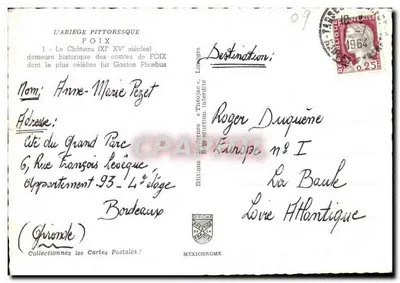 09
L'ARIEGE PITTORESQUE
FOIX
1 - Le Château (XIe XVe siècles)
demeure historique des comtes de FOIX
dont le plus célèbre fut Gaston Phœbus
Nom: Anne-Marie Pezet
Adresse:
Cité du Grand Parc
6, Rue François Levêque,
Appartement 93 - 4e étage
Bordeaux
(Gironde)
Collectionnez les Cartes Postales !
Reproduction interdite
MEXICHROME
1964
0,25
Destination:
Roger Duquène
Europe n° I
La Baule
Loire Atlantique